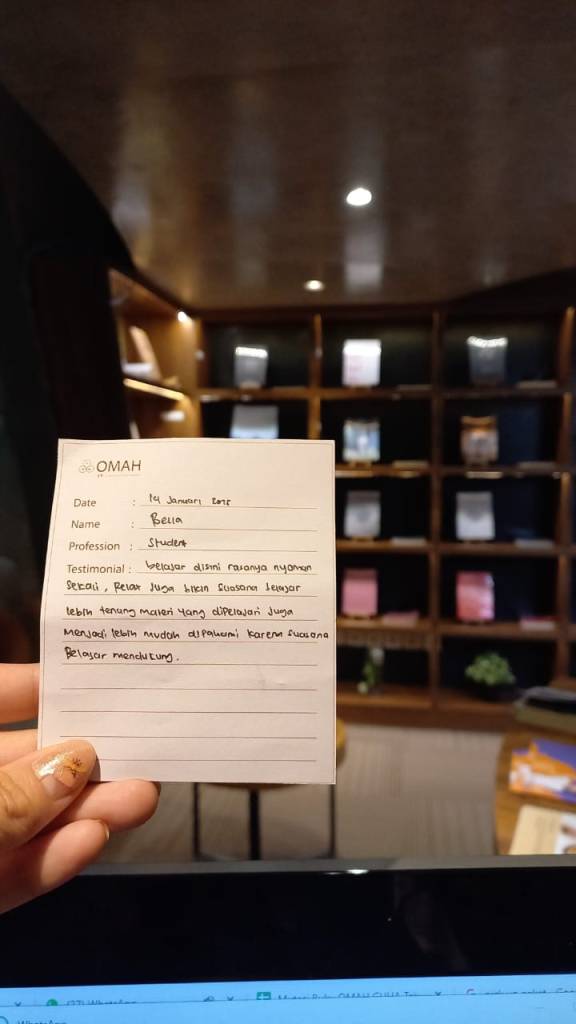 OMAH
Date : 14 Januari 2025
Name : Bella
Profession : Student
Testimonial : belajar disini rasanya nyaman
sekali, Relax juga bikin suasana belajar
lebih tenang materi yang dipelajari juga
menjadi lebih mudah dipahami karena suasana
Belajar mendukung.
(27) WhatsApp
WhatsApp